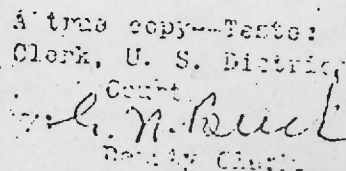 A true copy--Teste:
Clerk, U. S. District
Court.
By
Deputy Clerk.